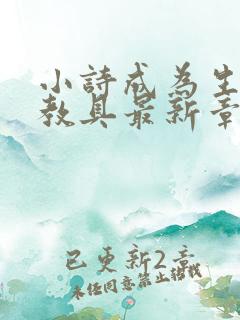 小詩成為生
教具最新章
已更新2章
未经同意禁止转载